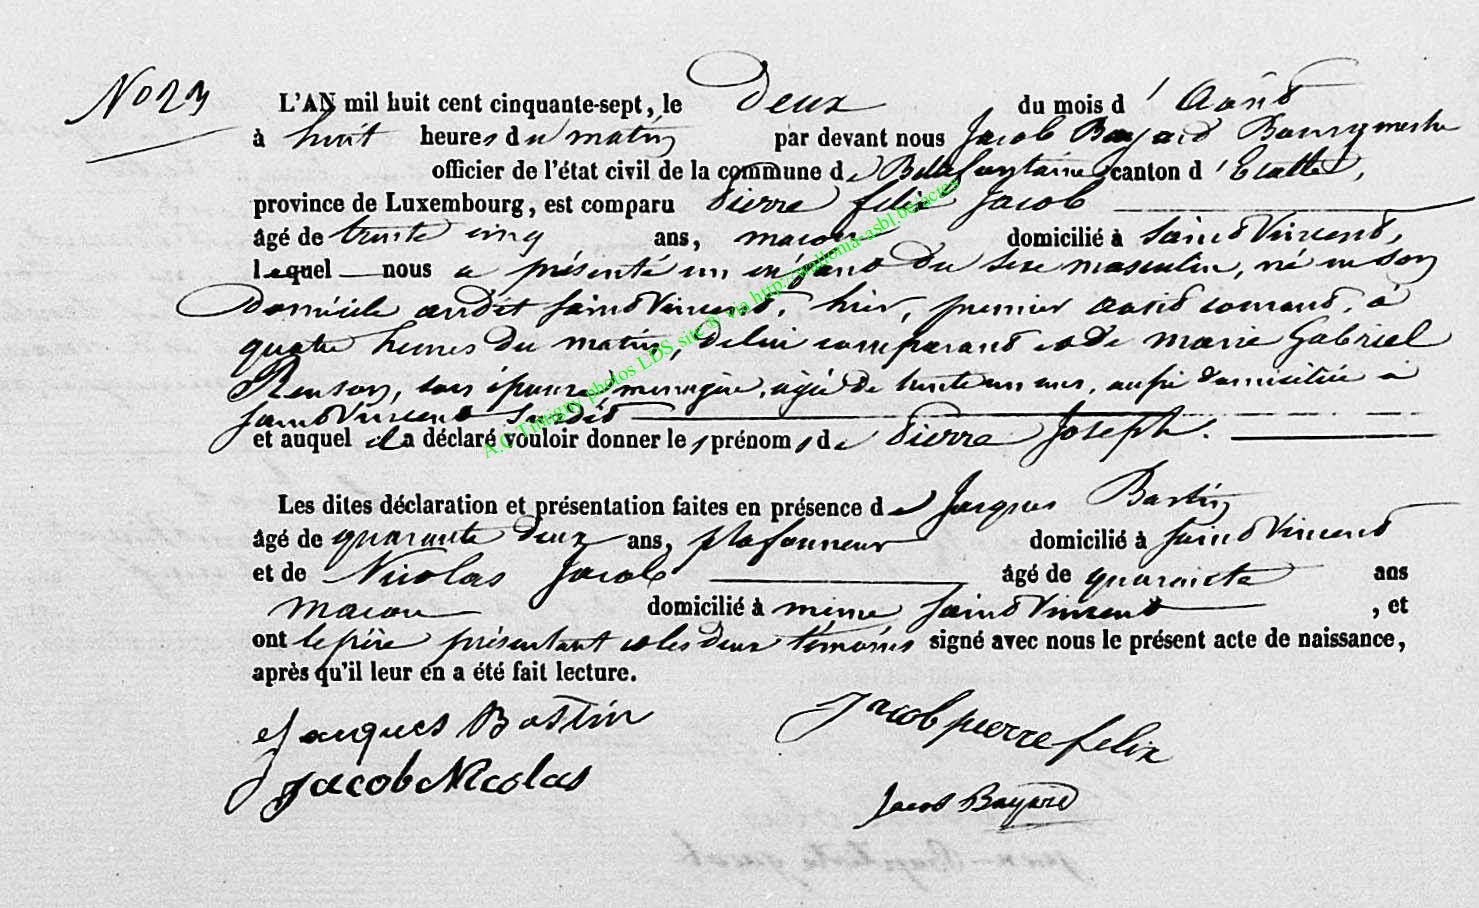 No 23
L'AN mil huit cent cinquante-sept, le Deux du mois d'Avril
à huit heures du matin par devant nous Jacob Bayard Bourgmestre
officier de l'état civil de la commune de Bellefontaine canton d'Etalle,
province de Luxembourg, est comparu Pierre felix Jacob
âgé de trente cinq ans, macon domicilié à Saint Vincent,
lequel nous a présenté un enfant du sexe masculin, né en son
Domicile audit Saint Vincent, hier, premier avril courant, à
quatre heures du matin, de lui comparant et de marie Gabriel
Renson, son épouse, menagère, agée de trente un ans, aussi domiciliée à
Saint Vincent susdit
et auquel il a déclaré vouloir donner les prénoms de Pierre Joseph.
Les dites déclaration et présentation faites en présence de Jacques Bastin
âgé de quarante deux ans, plafonneur domicilié à Saint Vincent
et de Nicolas Jacob âgé de quarante ans
macon domicilié à même Saint Vincent, et
ont le père présentant et les deux témoins signé avec nous le présent acte de naissance,
après qu'il leur en a été fait lecture.
Jacques Bastin
Jacob pierre felix
Jacob Nicolas
Jacob Bayard
A.C Tintigny photos LDS site © via http://wallonia-asbl.be/actes